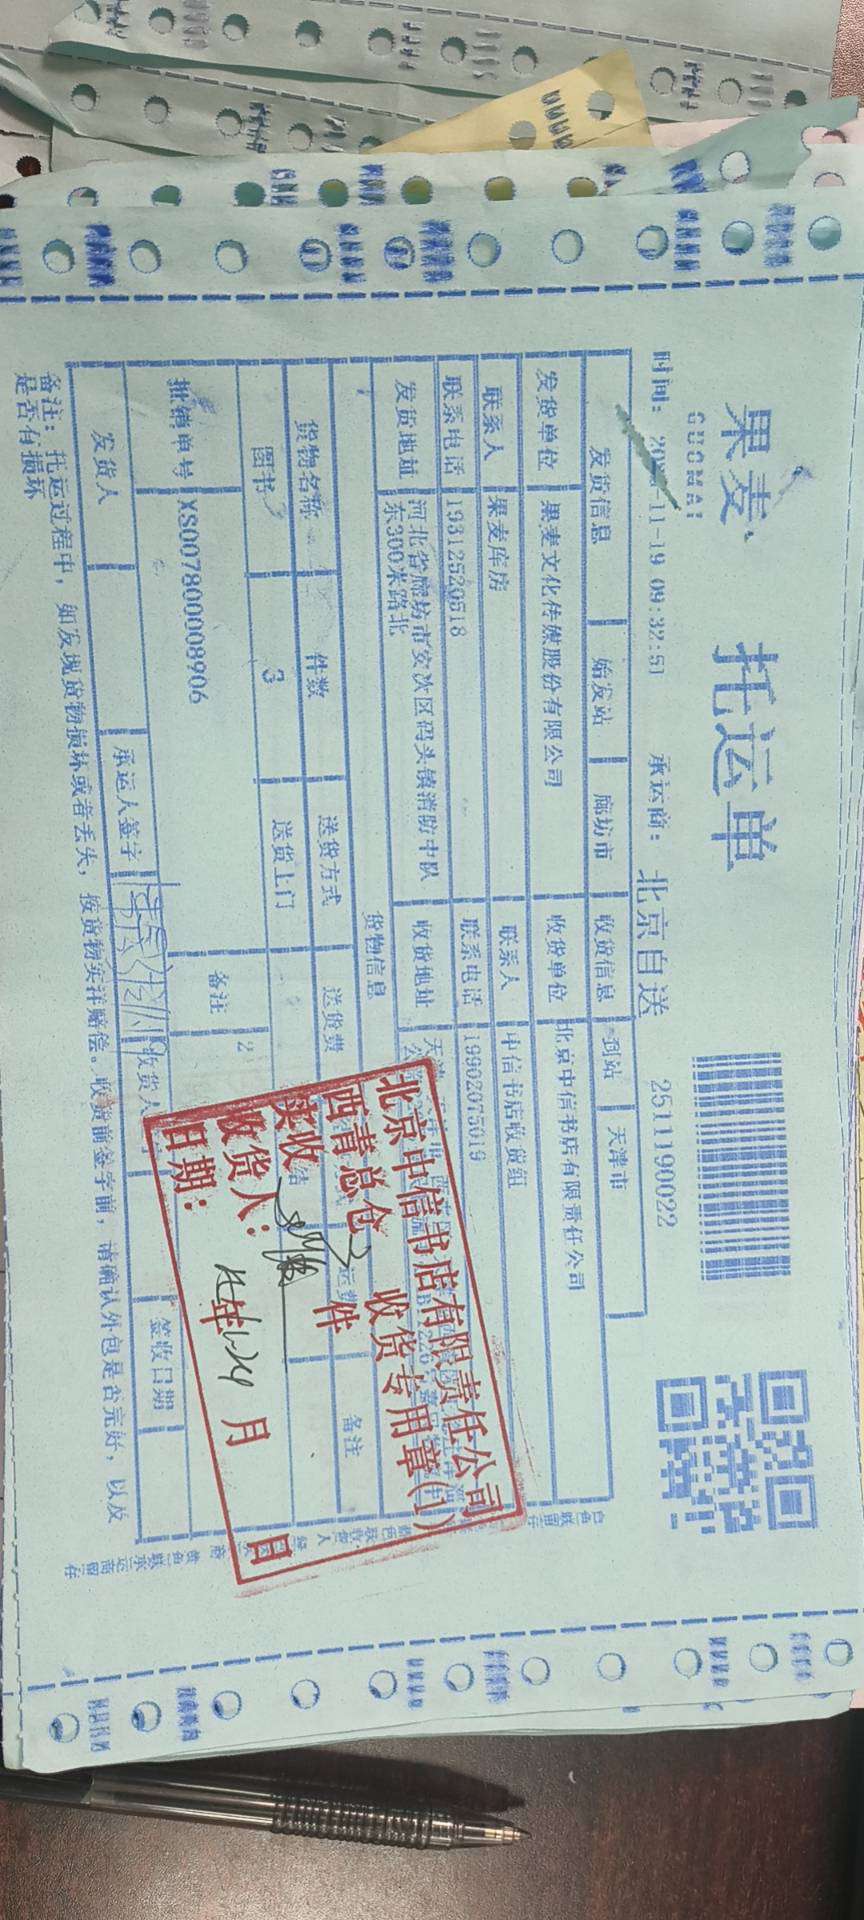 果麦
GUOMAI
托运单
时间： 11-19 09:32:51 承运商： 北京自送 2511190022
发货信息 始发站 廊坊市 收货信息 到站 天津市
发货单位 果麦文化传媒股份有限公司 收货单位 北京中信书店有限责任公司
联系人 果麦库房 联系人 中信书店收货组
联系电话 19312520518 联系电话 19902075019
发货地址 河北省廊坊市安次区码头镇消防中队
东300米路北 收货地址 天津
货物信息
货物名称 件数 送货方式 送货费 备注
图书 3 送货上门
批销单号 XS007800008906 备注
发货人 承运人签字 收货人 签收日期
备注：托运过程中，如发现货物损坏或者丢失，按货物实洋赔偿。收货前签字前，请确认外包是否完好，以及
是否有损坏
北京中信书店有限责任公司
西青总仓 收货专用章(1)
实收 件
收货人：
日期： 年 月 日